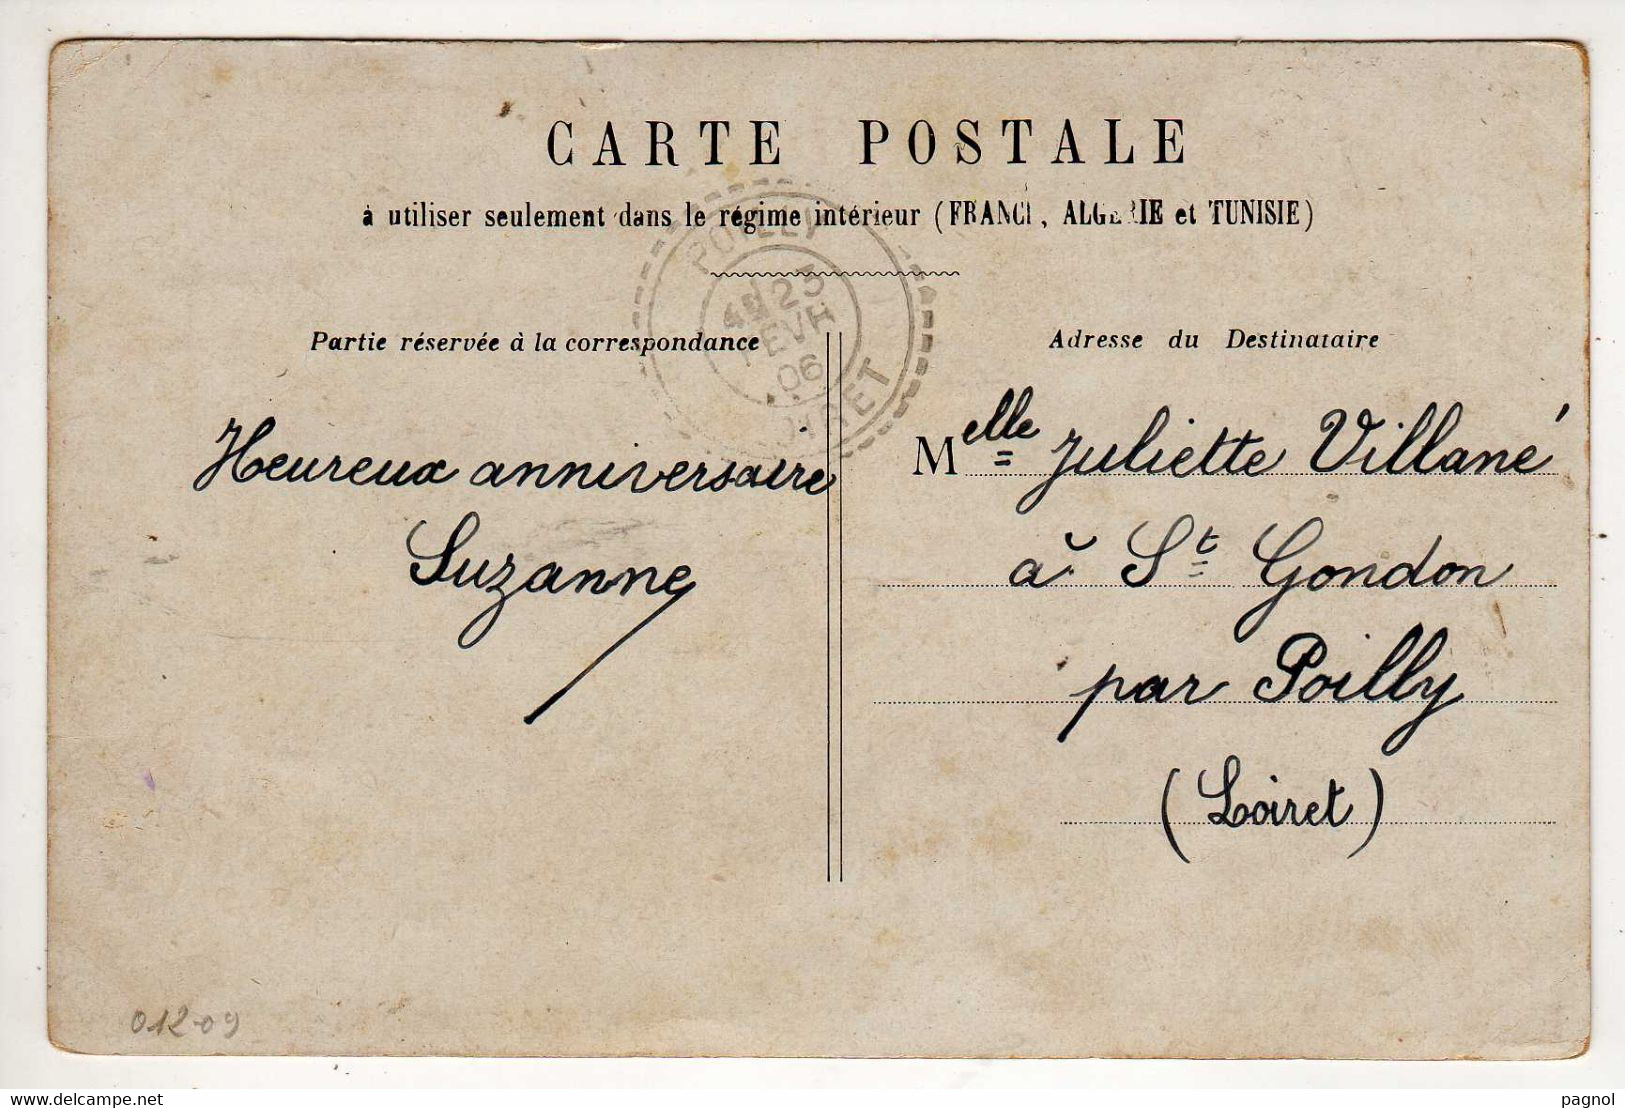 CARTE POSTALE
à utiliser seulement dans le régime intérieur (FRANCE, ALGERIE et TUNISIE)
POILLY
4E 23
FEVR
06
LOIRET
Partie réservée à la correspondance
Heureux anniversaire
Suzanne
Adresse du Destinataire
Melle Juliette Villané
à St Gondon
par Poilly
(Loiret)
01209
www.delcampe.net
pagnol